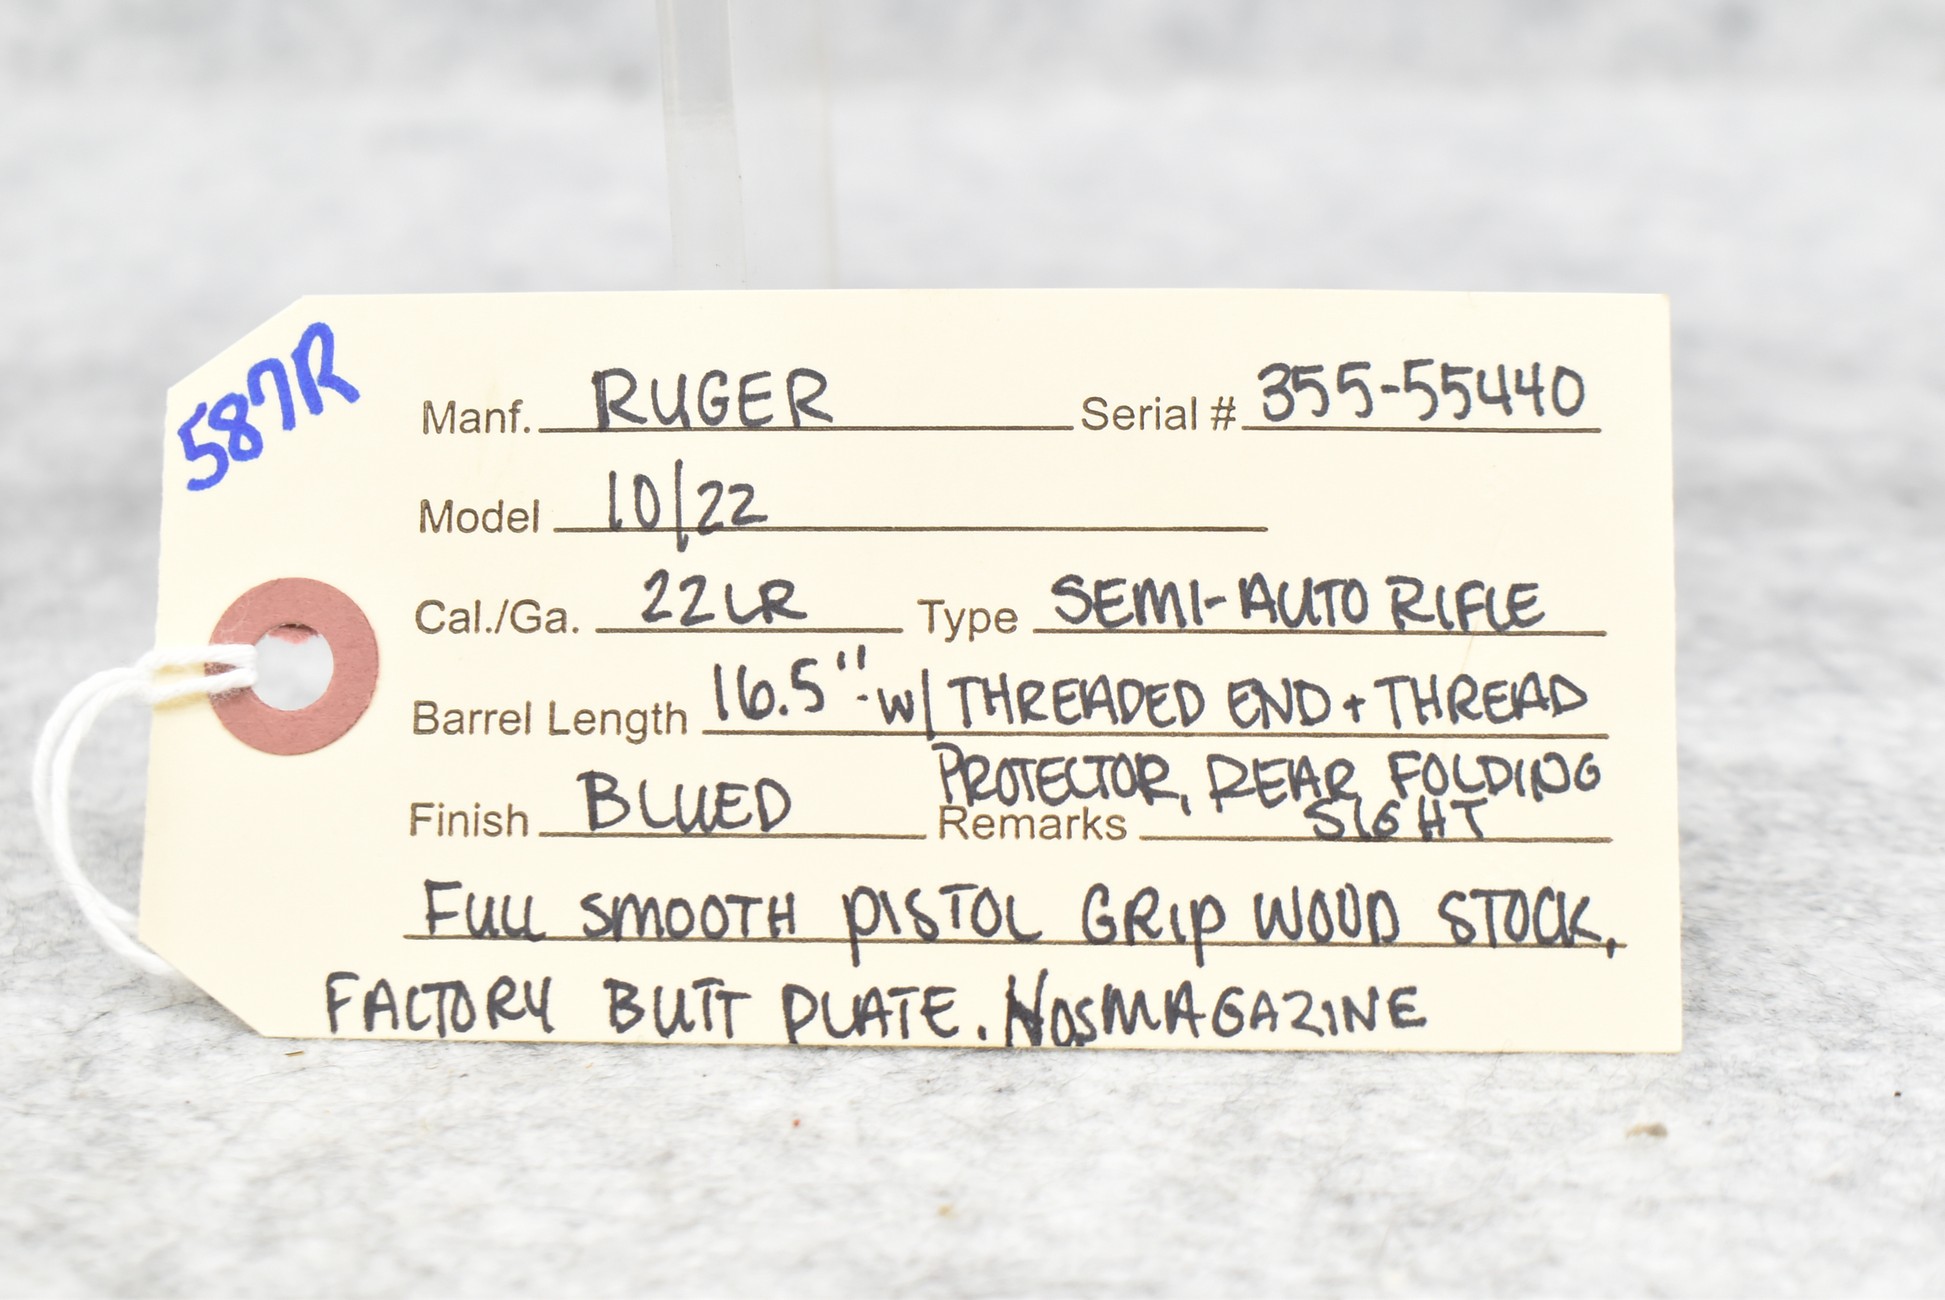 587R
Manf. RUGER Serial # 355-55440
Model 10/22
Cal./Ga. 22LR Type SEMI-AUTO RIFLE
Barrel Length 16.5"-w/ THREADED END + THREAD
PROTECTOR, REAR FOLDING
Finish BLUED Remarks SIGHT
FULL SMOOTH PISTOL GRIP WOOD STOCK,
FACTORY BUTT PLATE. MAGAZINE